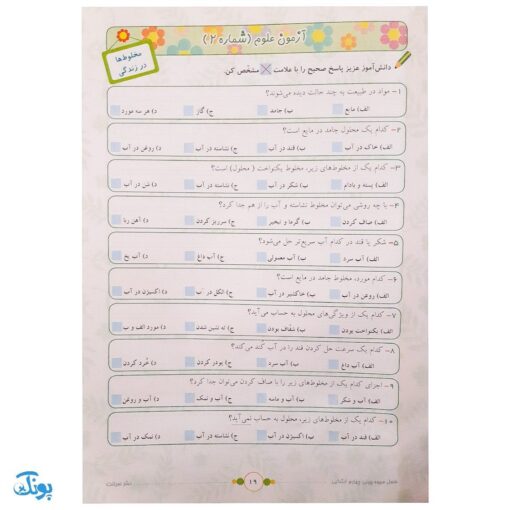 آزمون علوم (شماره ۲)
مخلوط‌ها
در زندگی
دانش‌آموز عزیز پاسخ صحیح را با علامت ☒ مشخّص کن.
۱- مواد در طبیعت به چند حالت دیده می‌شوند؟
الف) مایع ب) جامد ج) گاز د) هر سه مورد
۲- کدام یک محلول جامد در مایع است؟
الف) خاک در آب ب) قند در آب ج) نشاسته در آب د) روغن در آب
۳- کدام یک از مخلوط‌های زیر، مخلوط یکنواخت ( محلول) است؟
الف) پسته و بادام ب) شکر در آب ج) نشاسته در آب د) شن در آب
۴- با چه روشی می‌توان مخلوط نشاسته و آب را از هم جدا کرد؟
الف) صاف کردن ب) گرما و تبخیر ج) سرریز کردن د) آهن ربا
۵- شکر یا قند در کدام آب سریع‌تر حل می‌شود؟
الف) آب سرد ب) آب معمولی ج) آب داغ د) آب یخ
۶- کدام مورد، مخلوط جامد در مایع است؟
الف) روغن در آب ب) خاکشیر در آب ج) الکل در آب د) اکسیژن در آب
۷- کدام یک از ویژگی‌های محلول به حساب می‌آید؟
الف) یکنواخت بودن ب) شفّاف بودن ج) ته نشین شدن د) مورد الف و ب
۸- کدام یک سرعت حل کردن قند را در آب کُند می‌کند؟
الف) آب داغ ب) آب سرد ج) پودر کردن د) خُرد کردن
۹- اجزای کدام یک از مخلوط‌های زیر را با صاف کردن می‌توان جدا کرد؟
الف) آب و شکر ب) آب و ماسه ج) آب و نمک د) آب و روغن
۱۰- کدام یک از مخلوط‌های زیر، محلول به حساب نمی‌آید؟
الف) قند در آب ب) اکسیژن در آب ج) نشاسته در آب د) نمک در آب
۱۹
پونک